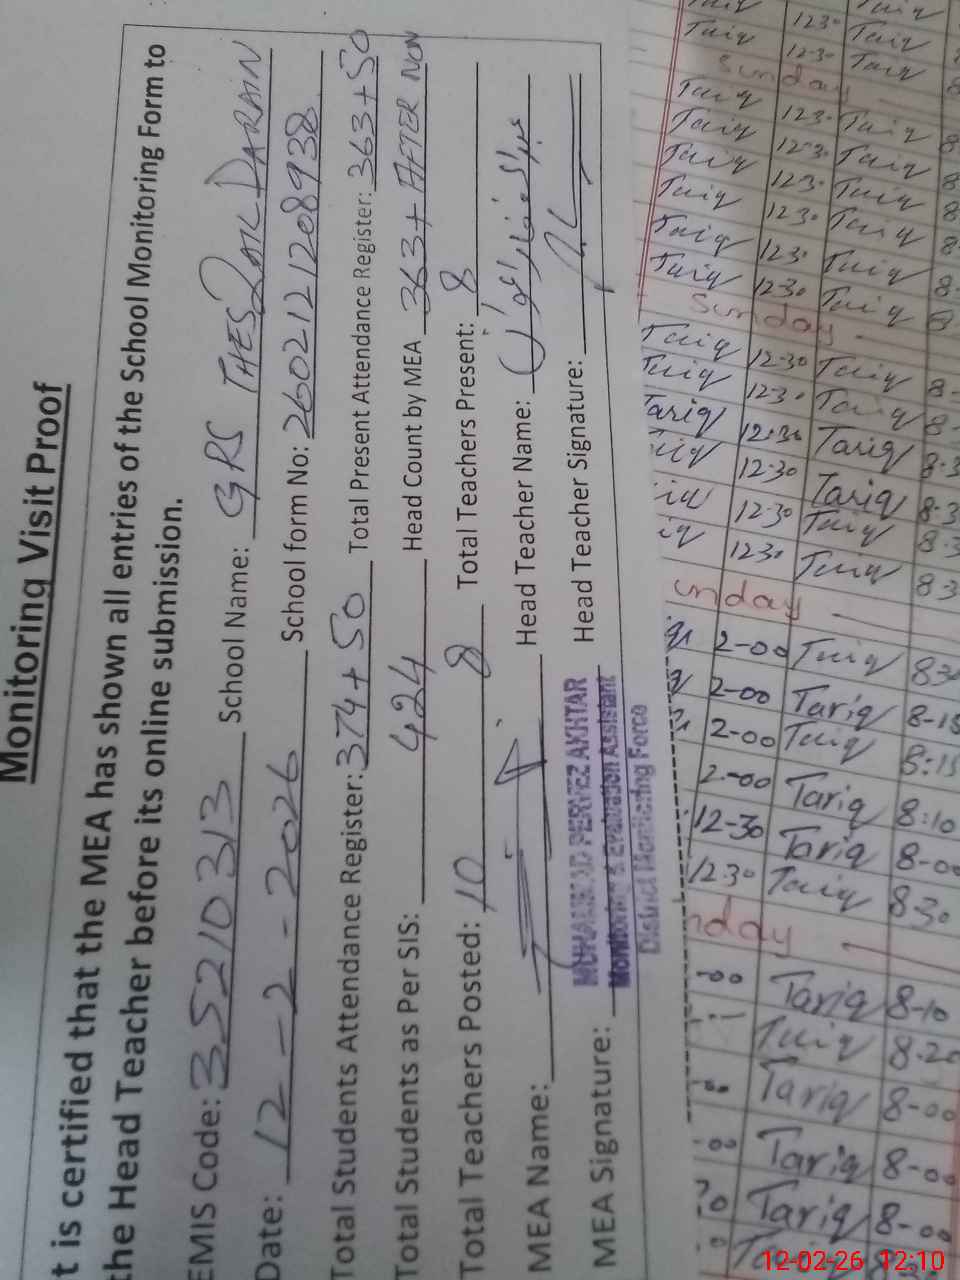 Monitoring Visit Proof
t is certified that the MEA has shown all entries of the School Monitoring Form to
the Head Teacher before its online submission.
EMIS Code: 35210313 School Name: GPS
Date: 12-2-2026 School form No: 260212120893
Total Students Attendance Register: 374+50 Total Present Attendance Register: 363+50
Total Students as Per SIS: 424 Head Count by MEA 363+ AFTER NON
Total Teachers Posted: 10 8 Total Teachers Present: 8
MEA Name: Head Teacher Name:
MEA Signature: Head Teacher Signature:
MUHAMMAD PERVEZ AKHTAR
Monitoring & Evaluation Assistant
District Monitoring Force
Tariq 1230 Tariq
1230 Tariq
Sunday
Tariq 1230 Tariq
Tariq 1230 Tariq
Tariq 1230 Tariq
Tariq 1230 Tariq
Tariq 1230 Tariq
Tariq 1230 Tariq
Sunday
Tariq 12-30 Tariq
Tariq 1230 Tariq
Tariq 12-30 Tariq 8-3
12-30 Tariq 8-3
12-30 Tariq 8-3
1230 Tariq 83
unday
2-00 Tariq 830
2-00 Tariq 8-15
2-00 Tariq 8:15
2-00 Tariq 8:10
12-30 Tariq 8-00
1230 Tariq 830
nday
-00 Tariq 8-10
Tariq 8-20
Tariq 8-00
Tariq 8-00
Tariq 8-00
Tariq
12-02-26 12:10